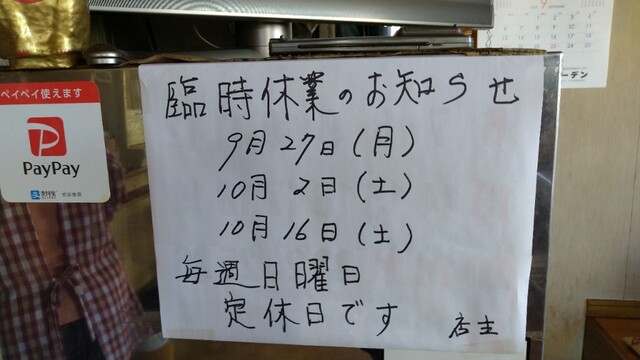 臨時休業のお知らせ
9月27日(月)
10月2日(土)
10月16日(土)
毎週日曜日
定休日です
店主
ペイペイ使えます
PayPay